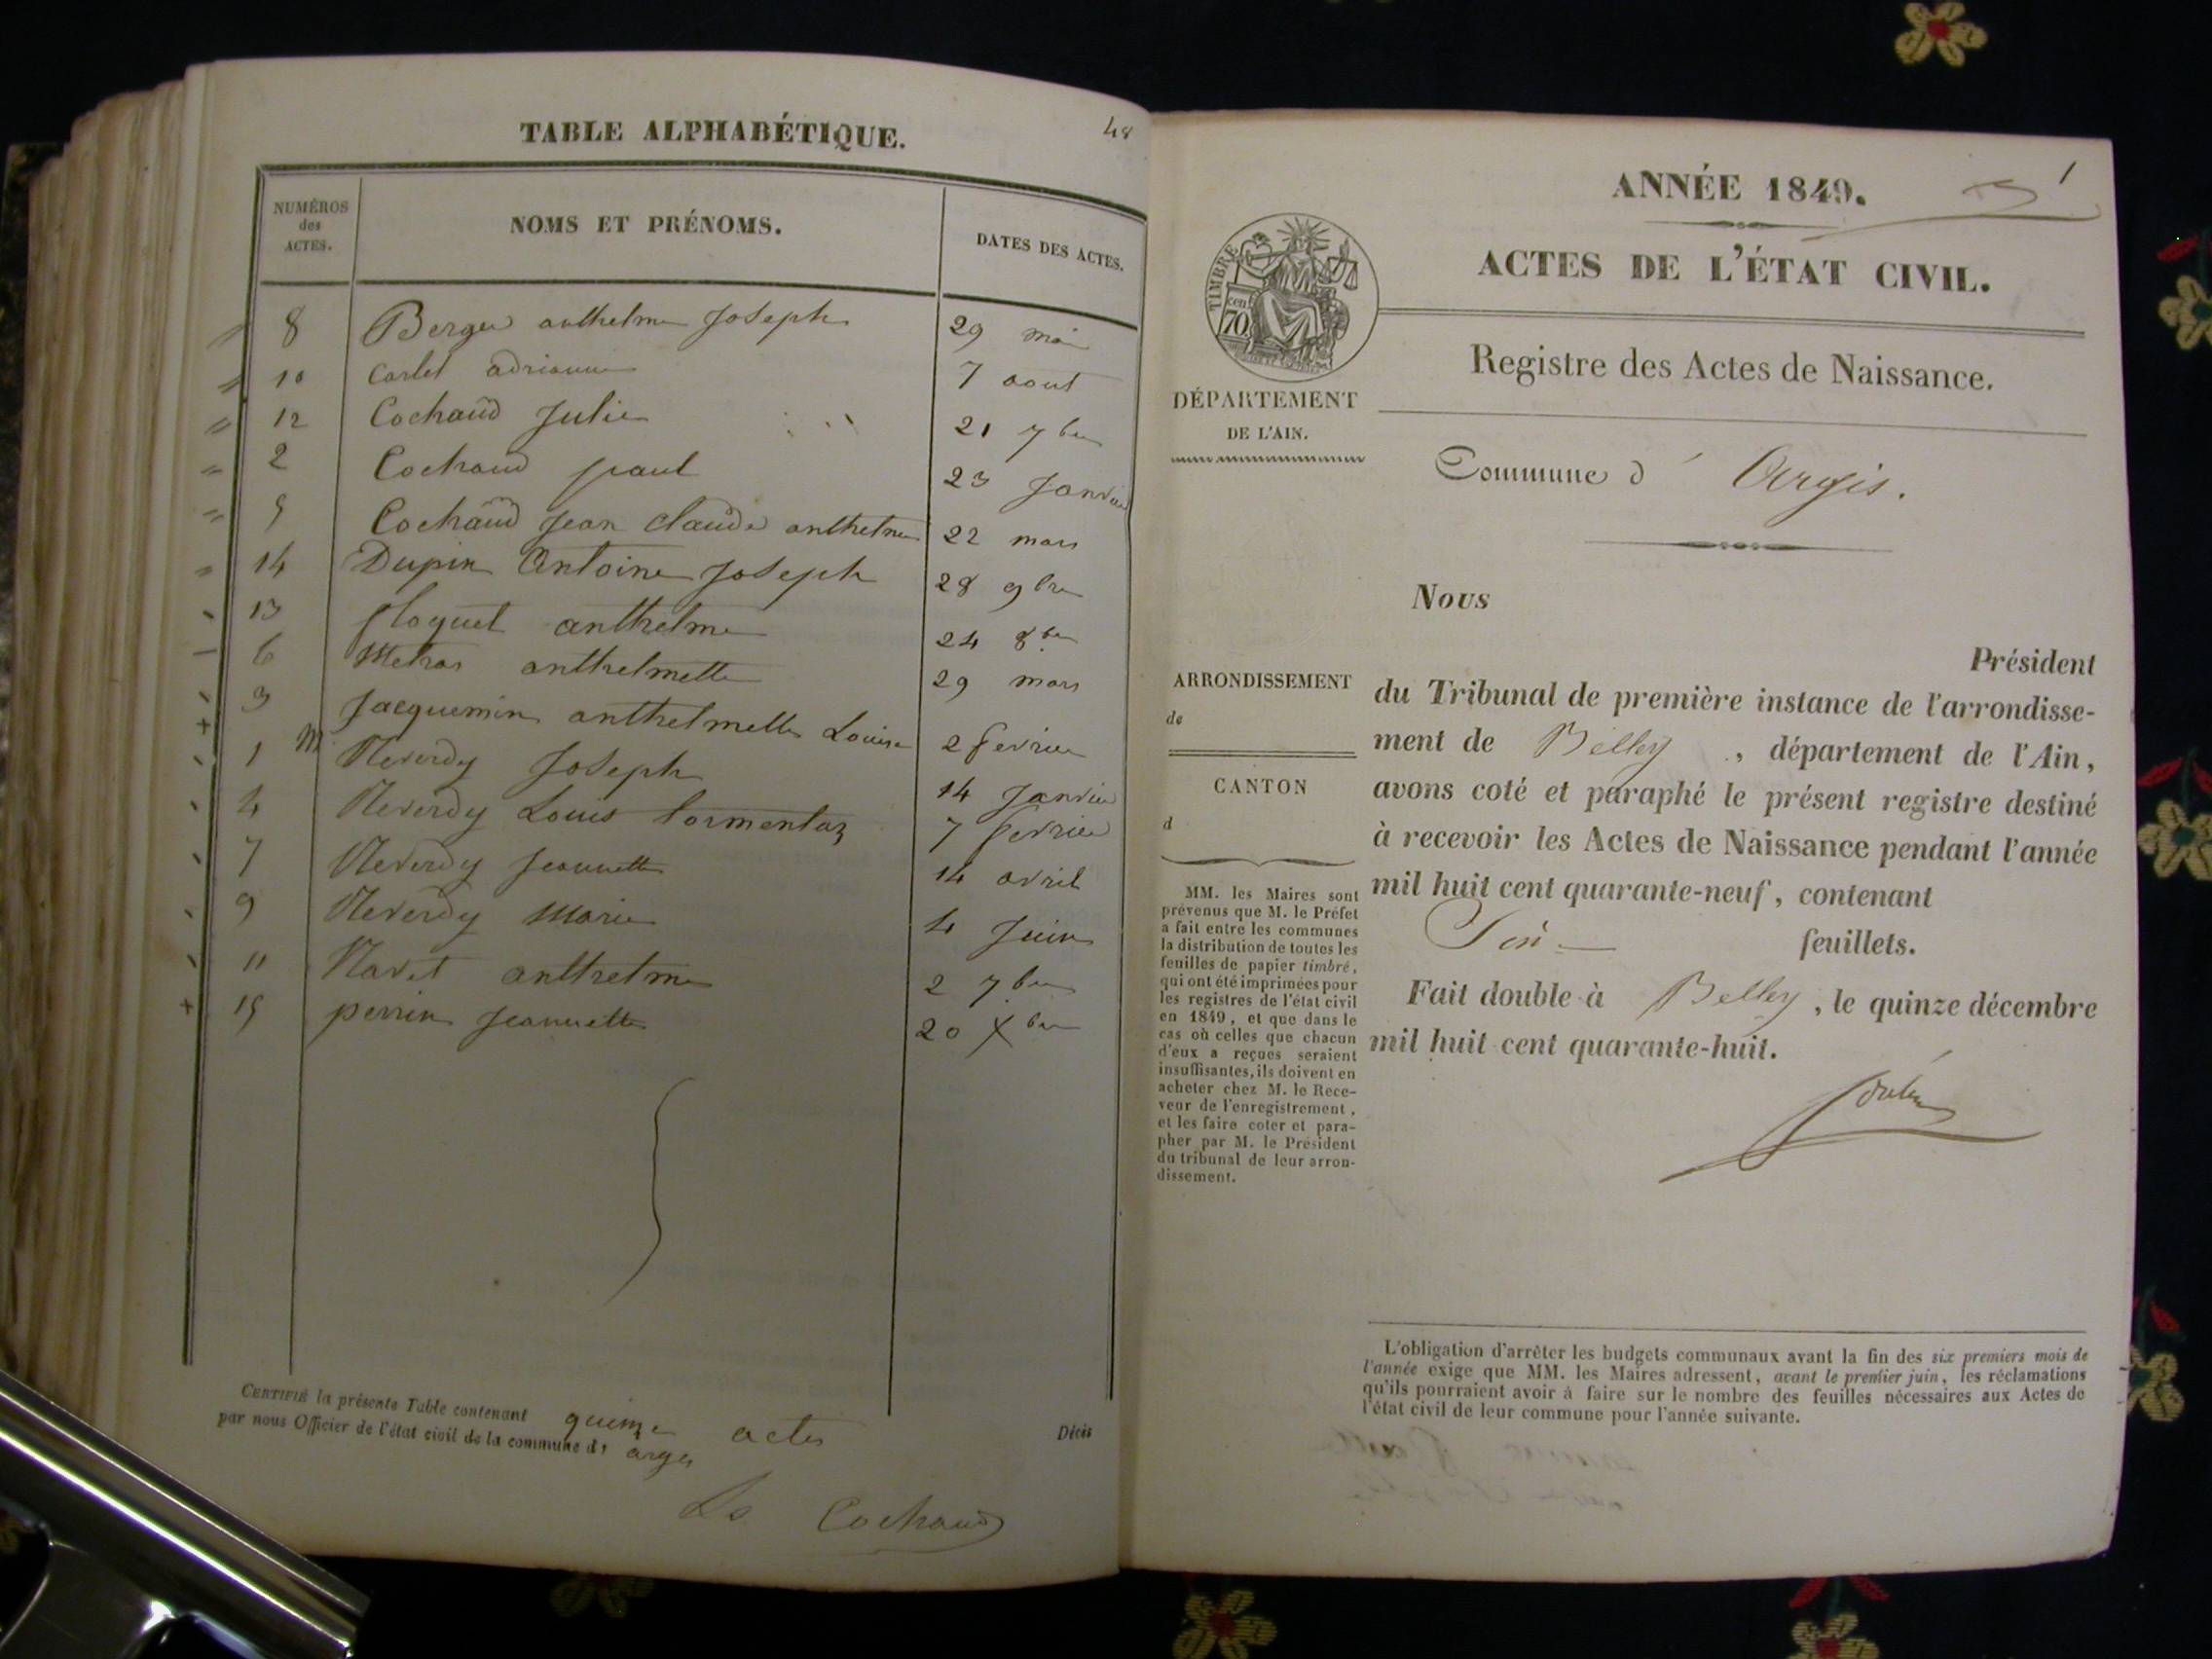 TABLE ALPHABÉTIQUE.
48
NUMÉROS des ACTES. NOMS ET PRÉNOMS. DATES DES ACTES.
8 Berger anthelme Joseph 29 mai
10 Carlet adrienne 7 aout
12 Cochaud Julie 21 7bre
2 Cochaud paul 23 Janvier
5 Cochaud Jean Claude anthelme 22 mars
14 Dupin Antoine Joseph 28 9bre
13 floquet anthelme 24 8bre
6 anthelmette 29 mars
3 Jacquemin anthelmette Louise 2 fevrier
1 M Reverdy Joseph 14 Janvier
4 Reverdy Louis tormentaz 7 fevrier
7 Reverdy Jeannette 14 avril
9 Reverdy Marie 4 Juin
11 Ravet anthelme 2 7bre
15 perrin Jeannette 20 Xbre
CERTIFIÉ la présente Table contenant quinze actes
par nous Officier de l'état civil de la commune d' argis
Décès
Cochaud
1
ANNÉE 1849.
ACTES DE L'ÉTAT CIVIL.
TIMBRE
70 cen
Registre des Actes de Naissance.
DÉPARTEMENT
DE L'AIN.
Commune d' Argis.
Nous
Président
ARRONDISSEMENT
de
CANTON
d
du Tribunal de première instance de l'arrondisse-
ment de Belley , département de l'Ain,
avons coté et paraphé le présent registre destiné
à recevoir les Actes de Naissance pendant l'année
mil huit cent quarante-neuf, contenant
feuillets.
Fait double à Belley , le quinze décembre
mil huit cent quarante-huit.
MM. les Maires sont
prévenus que M. le Préfet
a fait entre les communes
la distribution de toutes les
feuilles de papier timbré,
qui ont été imprimées pour
les registres de l'état civil
en 1849, et que dans le
cas où celles que chacun
d'eux a reçues seraient
insuffisantes, ils doivent en
acheter chez M. le Rece-
veur de l'enregistrement,
et les faire coter et para-
pher par M. le Président
du tribunal de leur arron-
dissement.
L'obligation d'arrêter les budgets communaux avant la fin des six premiers mois de
l'année exige que MM. les Maires adressent, avant le premier juin, les réclamations
qu'ils pourraient avoir à faire sur le nombre des feuilles nécessaires aux Actes de
l'état civil de leur commune pour l'année suivante.